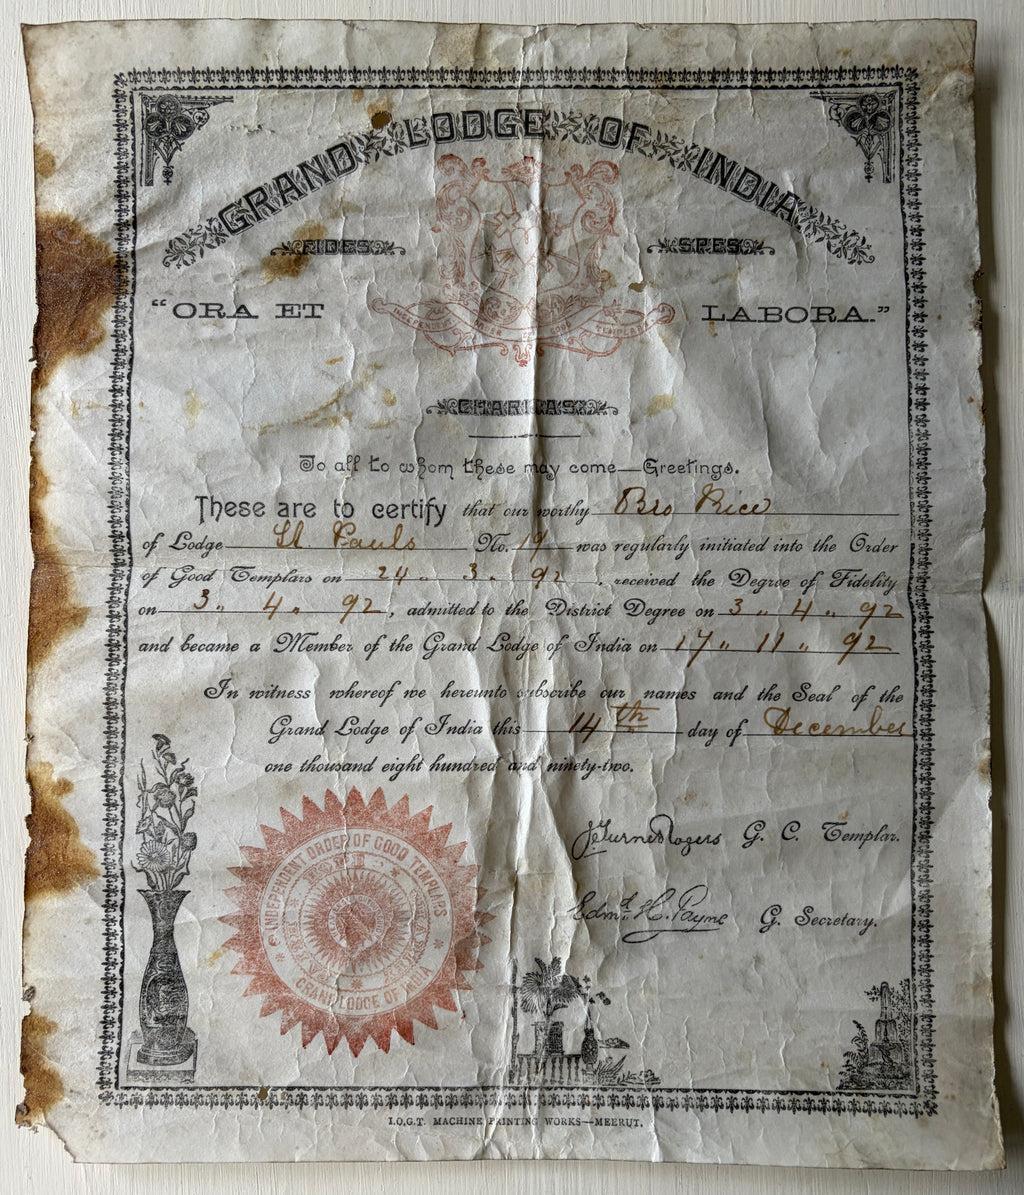 GRAND LODGE OF INDIA
FIDES SPES
"ORA ET LABORA."
INDEPENDENT ORDER OF GOOD TEMPLARS
CHARITAS
To all to whom these may come—Greetings.
These are to certify that our worthy Bro Rice
of Lodge St Pauls No. 19 was regularly initiated into the Order
of Good Templars on 24 " 3 " 92, received the Degree of Fidelity
on 3 " 4 " 92, admitted to the District Degree on 3 " 4 " 92
and became a Member of the Grand Lodge of India on 17 " 11 " 92
In witness whereof we hereunto subscribe our names and the Seal of the
Grand Lodge of India this 14th day of December
one thousand eight hundred and ninety-two.
J. Turner Rogers G. C. Templar.
Edmd. H. Payne G. Secretary.
INDEPENDENT ORDER OF GOOD TEMPLARS
GRAND LODGE OF INDIA
I.O.G.T. MACHINE PRINTING WORKS—MEERUT.